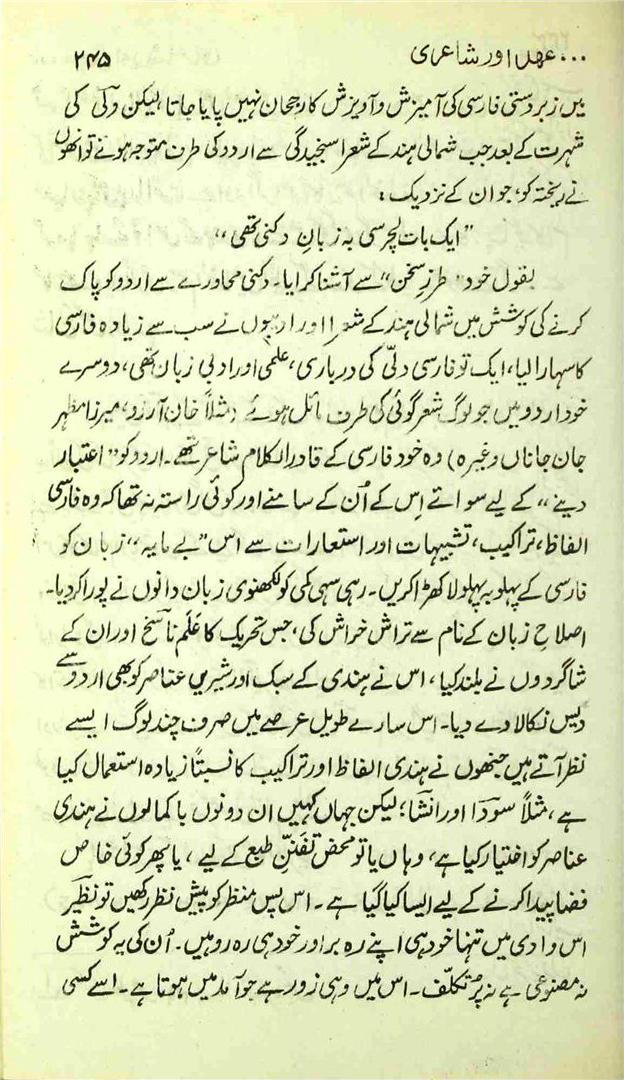 ... عہد اور شاعری ۲۴۵
میں زبردستی فارسی کی آمیزش و آویزش کا رجحان نہیں پایا جاتا لیکن ولی کی
شہرت کے بعد جب شمالی ہند کے شعرا سنجیدگی سے اردو کی طرف متوجہ ہوئے تو انھوں
نے ریختہ کو، جو ان کے نزدیک :
”ایک بات لچر سی بہ زبانِ دکنی تھی“
بقول خود ”طرزِ سخن“ سے آشنا کرایا۔ دکنی محاورے سے اردو کو پاک
کرنے کی کوشش میں شمالی ہند کے شعرا اور ادیبوں نے سب سے زیادہ فارسی
کا سہارا لیا، ایک تو فارسی دلّی کی درباری، علمی اور ادبی زبان تھی، دوسرے
خود اردو میں جو لوگ شعر گوئی کی طرف مائل ہوئے (مثلاً خان آرزو، میرزا مظہر
جان جاناں وغیرہ) وہ خود فارسی کے قادر الکلام شاعر تھے۔ اردو کو ”اعتبار
دینے“ کے لیے سوائے اِس کے اُن کے سامنے اور کوئی راستہ نہ تھا کہ وہ فارسی
الفاظ، تراکیب، تشبیہات اور استعارات سے اس ”بے مایہ“ زبان کو
فارسی کے پہلو بہ پہلو لا کھڑا کریں۔ رہی سہی کمی کو لکھنوی زبان دانوں نے پورا کر دیا۔
اصلاحِ زبان کے نام سے تراش خراش کی، جس تحریک کا عَلَم ناسخ اور ان کے
شاگردوں نے بلند کیا، اس نے ہندی کے سبک اور شیریں عناصر کو بھی اردو سے
دیس نکالا دے دیا۔ اس سارے طویل عرصے میں صرف چند لوگ ایسے
نظر آتے ہیں جنھوں نے ہندی الفاظ اور تراکیب کا نسبتاً زیادہ استعمال کیا
ہے، مثلاً سودا اور انشا؛ لیکن جہاں کہیں ان دونوں باکمالوں نے ہندی
عناصر کو اختیار کیا ہے، وہاں یا تو محض تفننِ طبع کے لیے، یا پھر کوئی خاص
فضا پیدا کرنے کے لیے ایسا کیا گیا ہے۔ اس پس منظر کو پیش نظر رکھیں تو نظیر
اس وادی میں تنہا خود ہی اپنے رہ بر اور خود ہی رہ رو ہیں۔ اُن کی یہ کوشش
نہ مصنوعی ہے نہ پُر تکلّف۔ اس میں وہی زور ہے جو آمد میں ہوتا ہے۔ اسے کسی